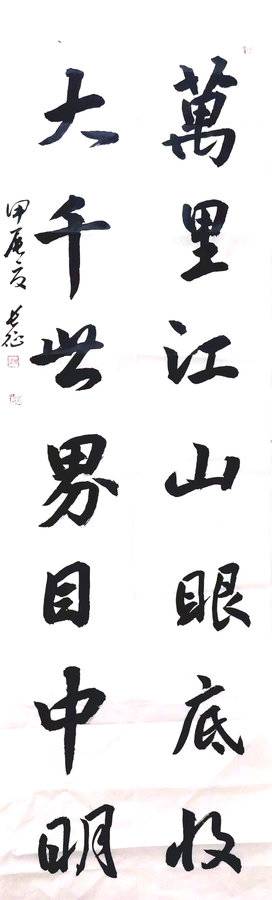 萬里江山眼底收
大千世界目中明
甲辰夏 长征